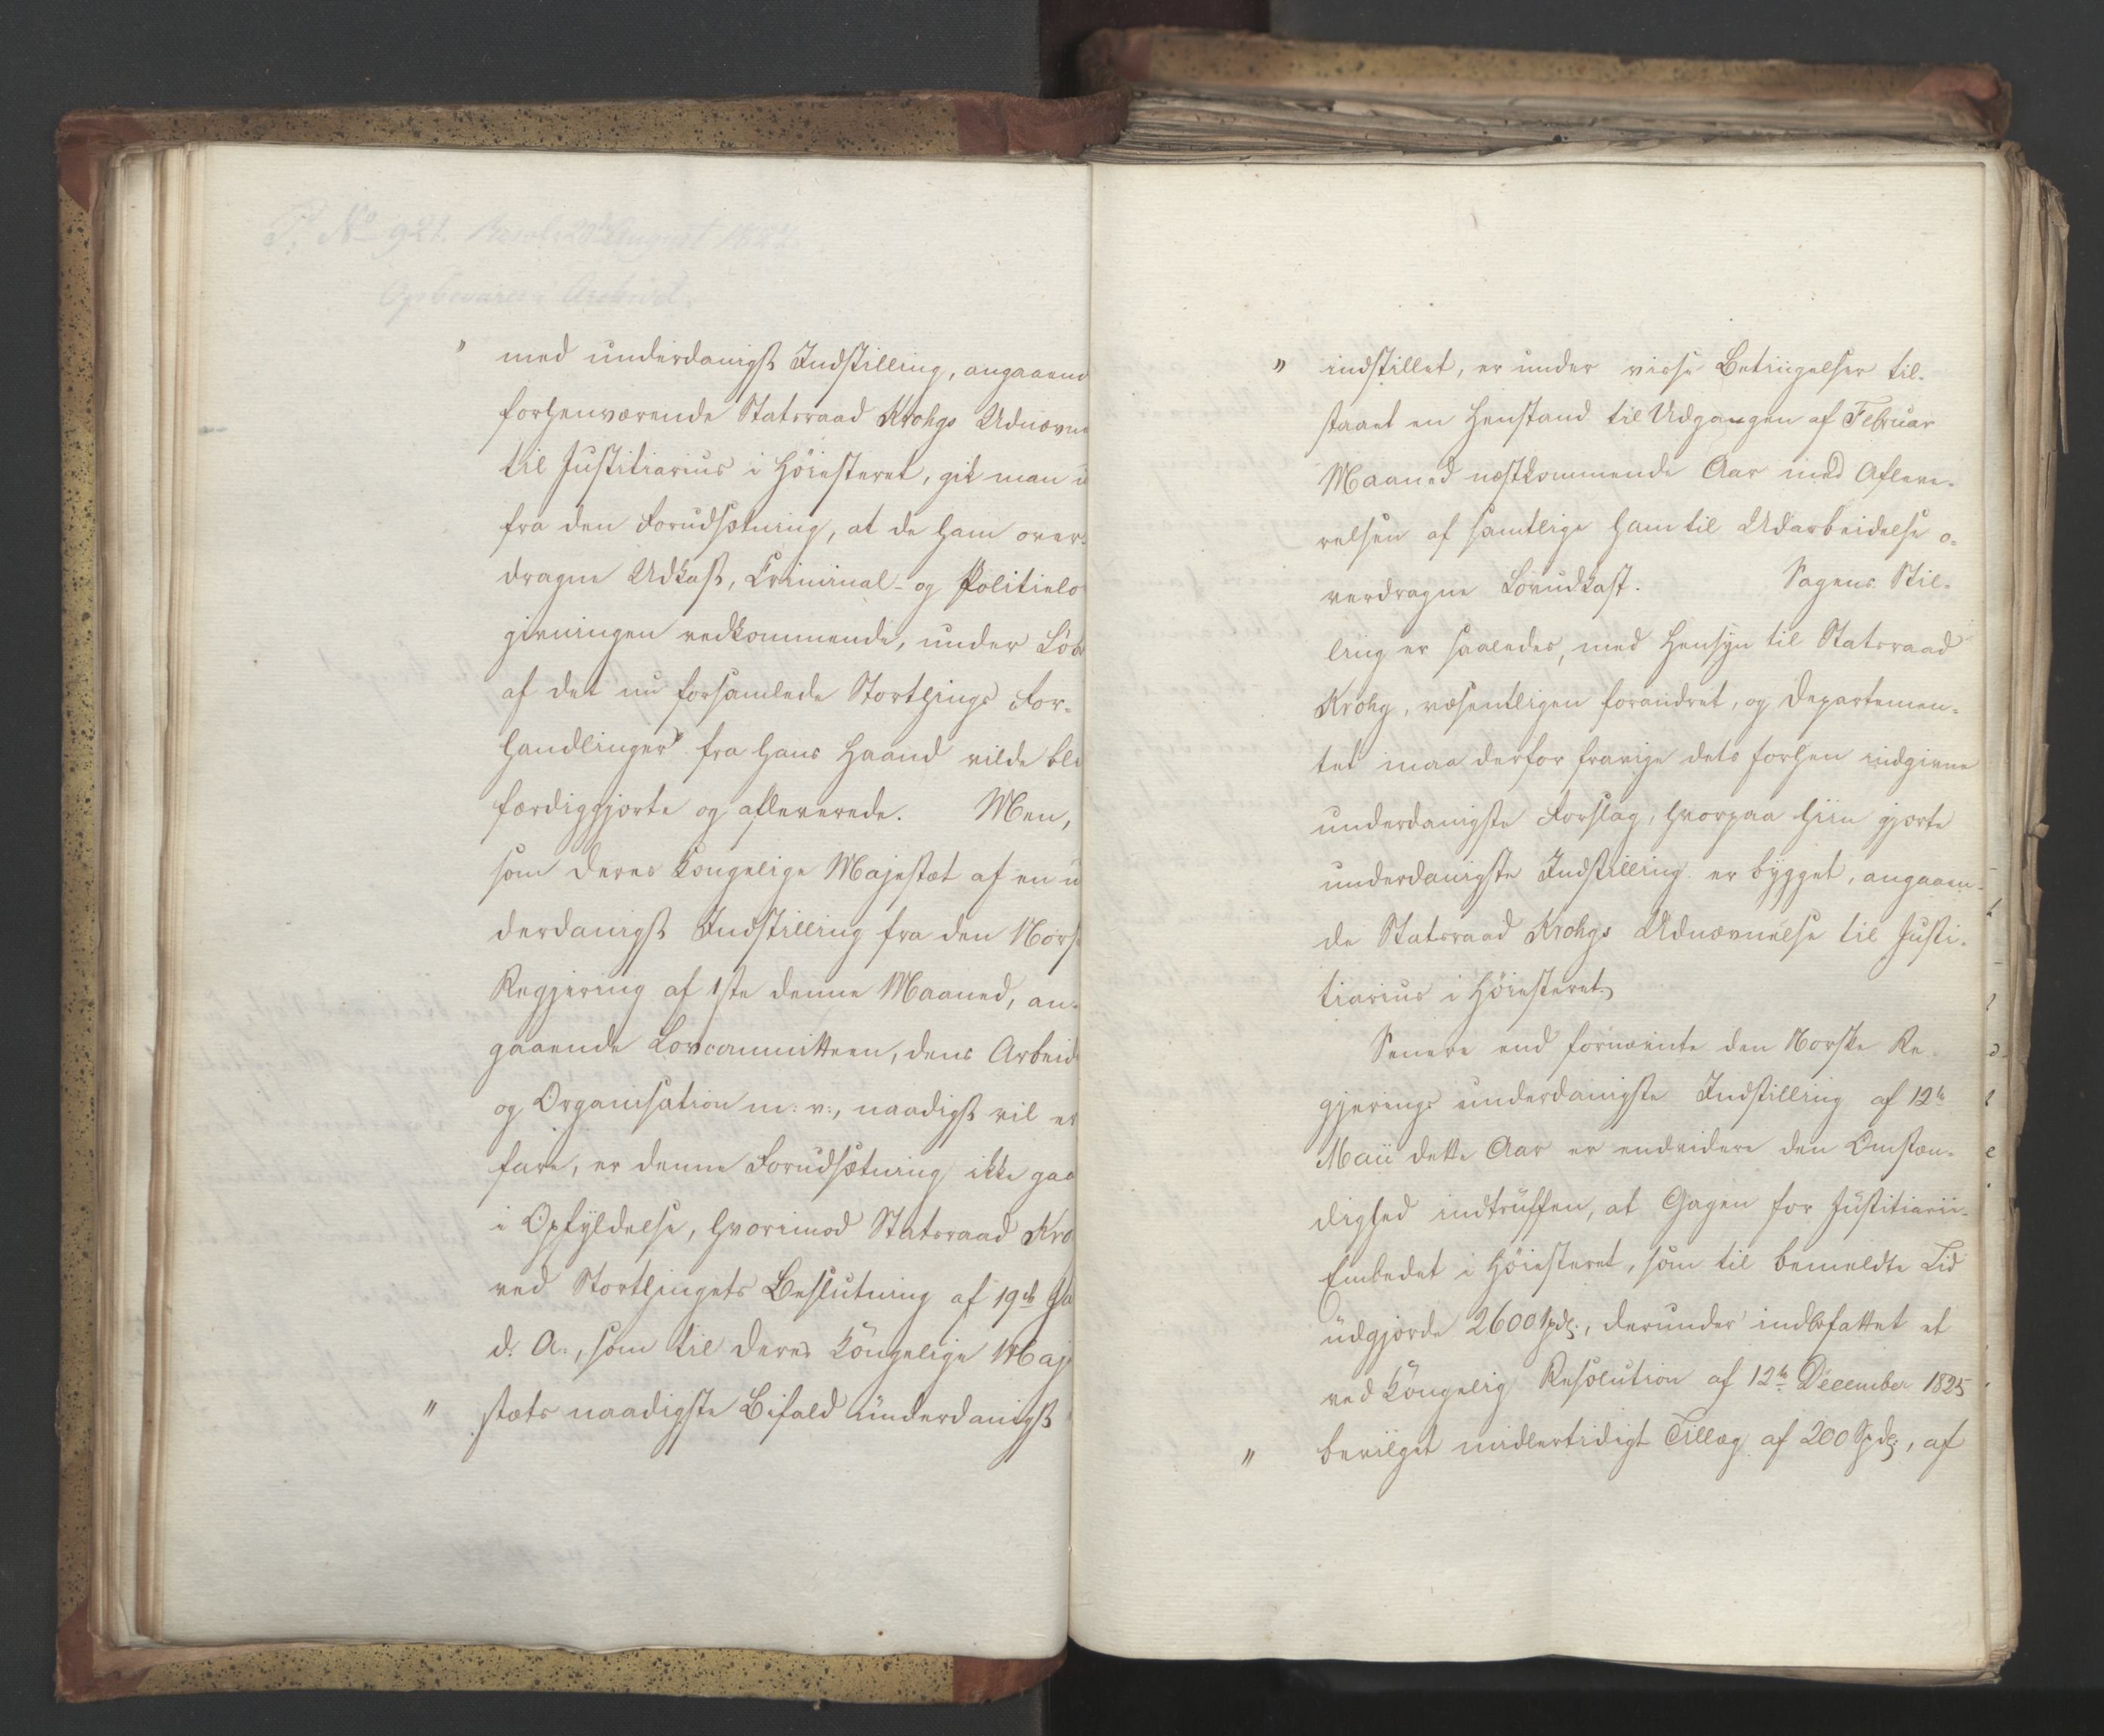 " med underdanigst Indstilling, angaaend
forhenværende Statsraad Krohgs Udnævne
til Justitiarius i Høiesteret, gik man u
fra den Forudsætning, at de ham over-
dragne Udkast, Criminal- og Politielo
givningen vedkommende, under Løb
af det nu forsamlede Storthings For-
handlinger fra hans Haand vilde bli
færdiggjorte og afleverede. Men,
som Deres Kongelige Majestæt af en u
derdanigst Indstilling fra den Norsk
Regjering af 1ste denne Maaned, an-
gaaende Lovcommitteen, dens Arbeid
og Organisation m: v:, naadigst vil er
fare, er denne Forudsætning ikke gaa
i Opfyldelse, hvorimod Statsraad Kro
ved Storthingets Beslutning af 19de
d. A., som til Deres Kongelige Maj
" stæts naadigste Bifald underdanigst
" indstillet, er under visse Betingelser til-
staaet en Henstand til Udgangen af Februar
Maaned næstkommende Aar med Afleve-
relsen af samtlige ham til Udarbeidelse o-
verdragne Lovudkast. Sagens Stil-
ling er saaledes, med Hensyn til Statsraad
Krohg, væsentligen forandret, og Departemen-
tet maa derfor fravige dets forhen indgivne
underdanigste Forslag, hvorpaa hiin gjorte
underdanigste Indstilling er bygget, angaaen-
de Statsraad Krohgs Udnævnelse til Justi-
tiarius i Høiesteret.
Senere end fornævnte den Norske Re-
gjerings underdanigste Indstilling af 12te
Maii dette Aar er endvidere den Omstæn-
dighed indtruffen, at Gagen for Justitiarii-
Embedet i Høiesteret, som til bemeldte Tid
udgjorde 2600 Spdl:, derunder indbefattet et
ved Kongelig Resolution af 12te December 1825
" bevilget midlertidigt Tillæg af 200 Spdl:, af